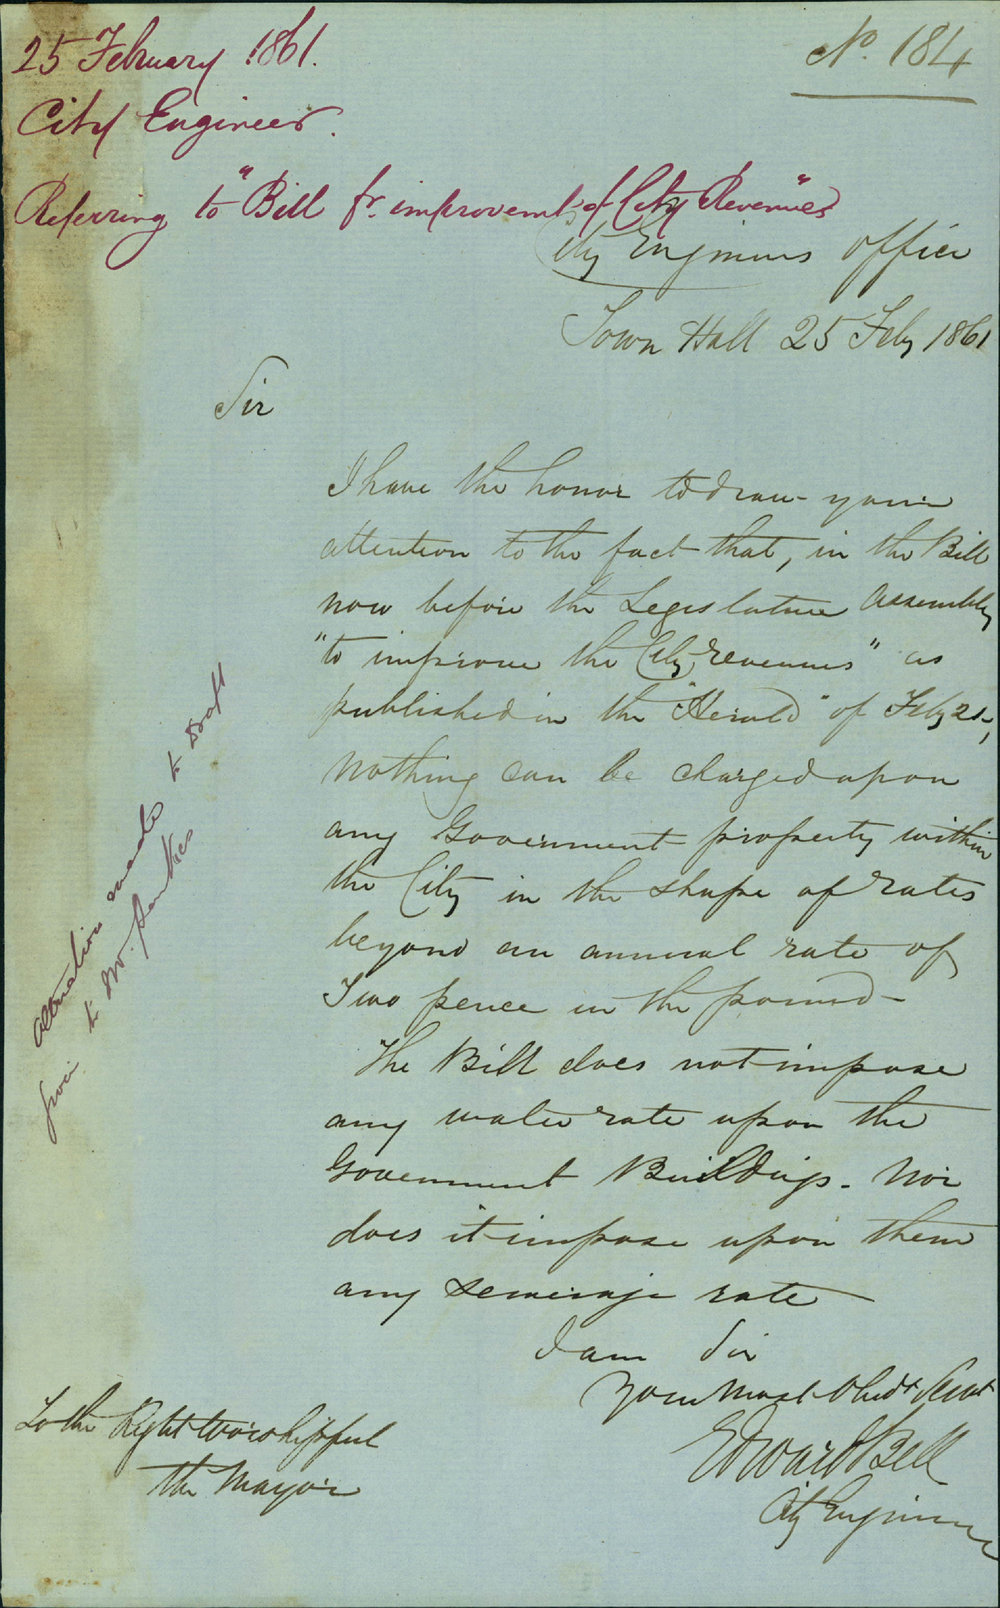 25 February 1861.
No. 184
City Engineer.
Referring to "Bill fr. improvemt of City Revenues"
City Engineers Office
Town Hall 25 Feby 1861
Sir
I have the honor to draw your
attention to the fact that, in the Bill
now before the Legislature Assembly
"to improve the City revenues" as
published in the "Herald" of Feby 21,
nothing can be charged upon
any Government property within
the City in the shape of rates
beyond an annual rate of
Two pence in the pound—
The Bill does not impose
any water rate upon the
Government Buildings. Nor
does it impose upon them
any sewerage rate—
I am Sir
Your most Obedt Servt
Edward Bell
City Engineer
To the Right Worshipful
the Mayor
made to Draft
to Mr.